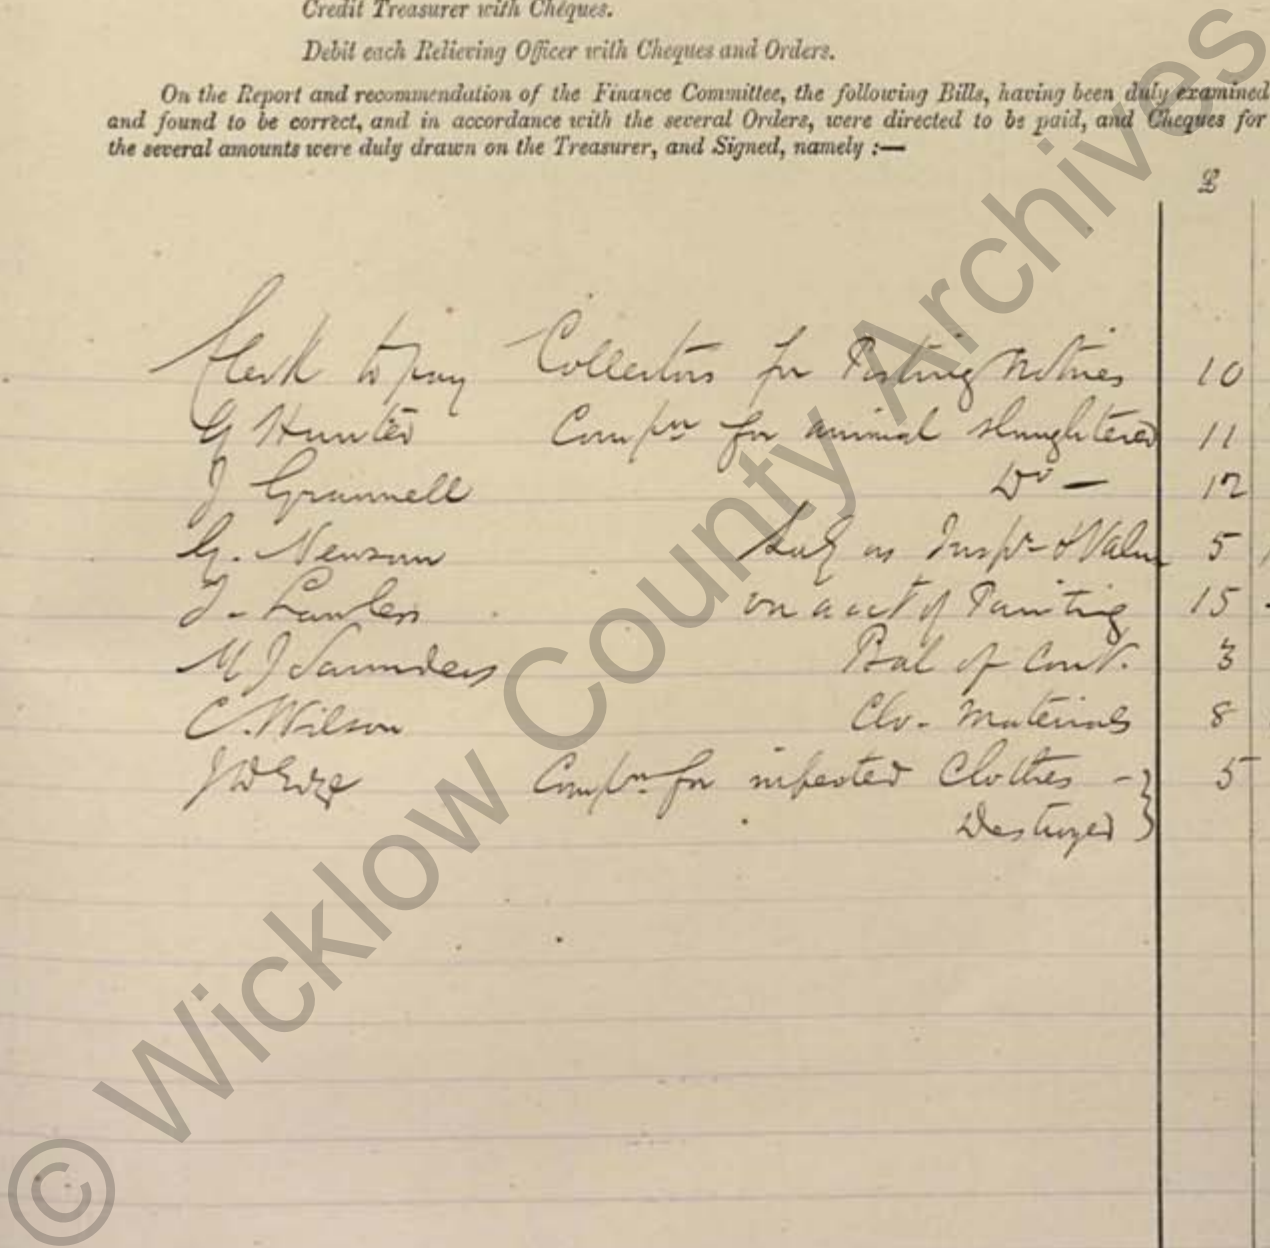 Credit Treasurer with Cheques.
Debit each Relieving Officer with Cheques and Orders.
On the Report and recommendation of the Finance Committee, the following Bills, having been duly examined
and found to be correct, and in accordance with the several Orders, were directed to be paid, and Cheques for
the several amounts were duly drawn on the Treasurer, and Signed, namely :—
£
Clerk to pay Collectors for Posting Notices 10
G Hunter Compn for animal slaughtered 11
J Grannell Do — 12
G. Newsom Saly as Inspr & Valur 5
J. Lawless on acct of Painting 15
M J Saunders Bal of Cont. 3
C. Wilson Clo. Materials 8
J W Compn for infected Clothes - } 5
Destroyed }
© Wicklow County Archives